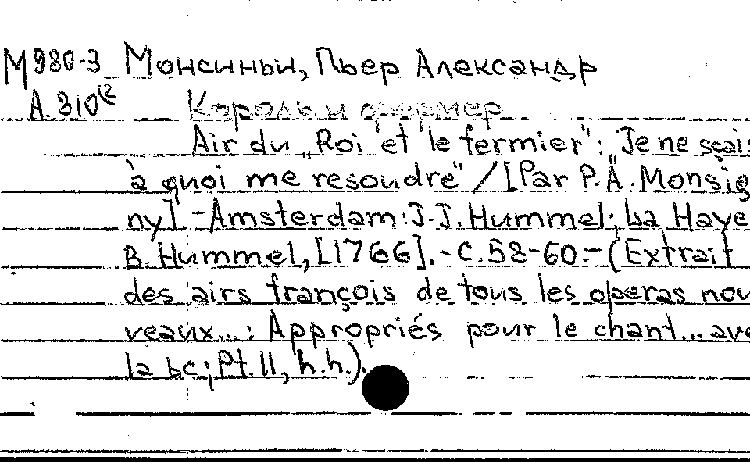 М980-3 Монсиньи, Пьер Александр
А 310 Король и фермер
Air du „Roi et le fermier": Je ne sçais
à quoi me resoudre" / [Par P. A. Monsig
ny]. - Amsterdam: J. J. Hummel; La Haye
B. Hummel, [1766]. - C. 58-60. - (Extrait
des airs françois de tous les operas nou
veaux...: Appropriés pour le chant... ave
la bc; Pt. II, h.h.).